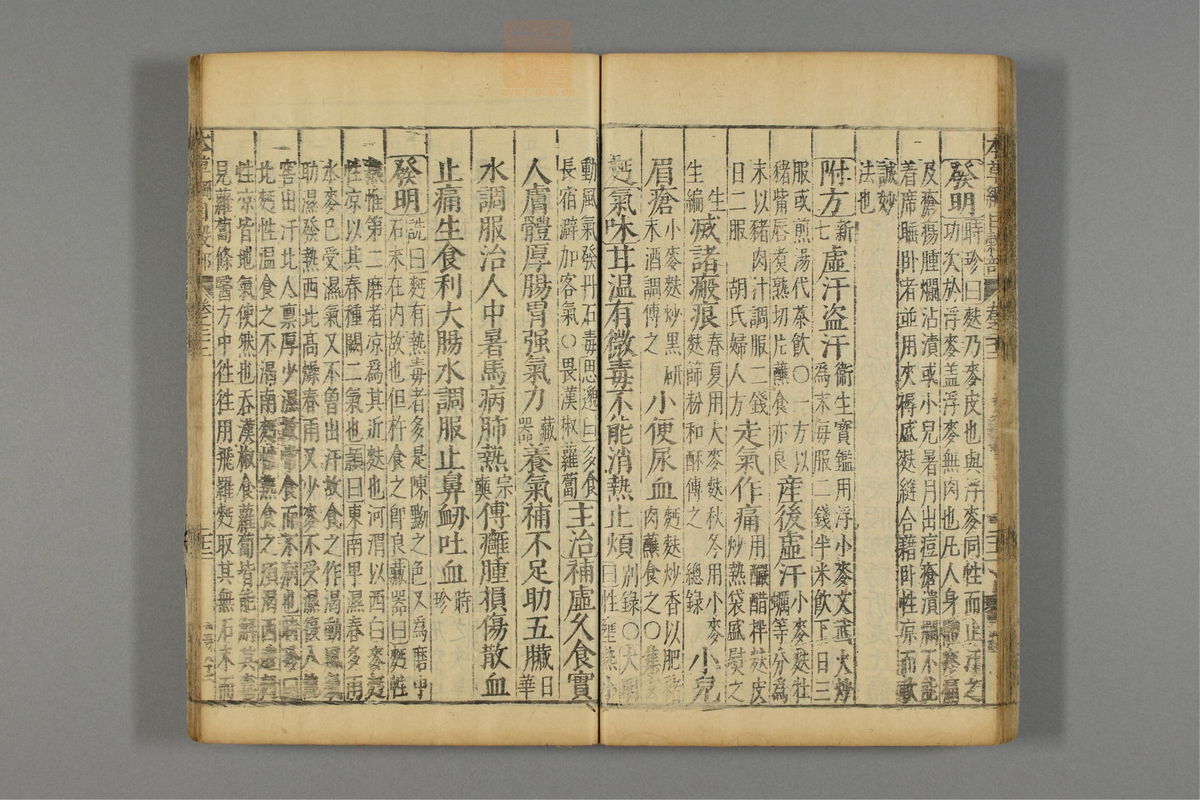 發明時珍曰麩乃麥皮也與浮麥同性而止汗之
功次於浮麥蓋浮麥無肉也凡人身
及瘡瘍腫爛沾漬或小兒暑月出痘瘡潰爛不能
着席睡卧者並用夾褥盛麩縫合藉卧性涼而軟
誠妙
法也
附方新七虛汗盜汗衛生寶鑑用浮小麥文武火炒
為末每服二錢半米飲下日三
服或煎湯代茶飲○一方以
猪觜唇煮熟切片蘸食亦良產後虛汗小麥麩牡
蠣等分為
末以猪肉汁調服二錢
日二服 胡氏婦人方走氣作痛用釅醋拌麩皮
炒熱袋盛熨之
生生編滅諸瘢痕春夏用大麥麩秋冬用小麥
麩篩粉和酥傅之 總錄小兒
眉瘡小麥麩炒黑研
末酒調傅之小便尿血麪麩炒香以肥猪
肉蘸食之○集
麪氣味甘溫有微毒不能消熱止煩別錄○大明
曰性壅熱小
動風氣發丹石毒思邈曰多食
長宿澼加客氣○畏漢椒蘿蔔主治補虛久食實
人膚體厚腸胃强氣力藏器養氣補不足助五臟日華
水調服治人中暑馬病肺熱宗奭傅癰腫損傷散血
止痛生食利大腸水調服止鼻衄吐血時珍
發明詵曰麪有熱毒者多是陳黝之色又為磨中
石末在内故也但杵食之即良藏器曰麪性
惟第二磨者凉為其近麩也河渭以西白麥麪
性凉以其春種闕二氣也頴曰東南卑濕春多雨
水麥已受濕氣又不曾出汗故食之作渴動風氣
助濕發熱西北高燥春雨又少麥不受濕復入
窖出汗北人禀厚少濕故常食而不病也時珍曰
北麪性溫食之不渴南麪性熱食之煩渴西邊麪
性凉皆地氣使然也吞漢椒食蘿蔔皆能解其毒
見蘿蔔條醫方中往往用飛羅麪取其無石末而